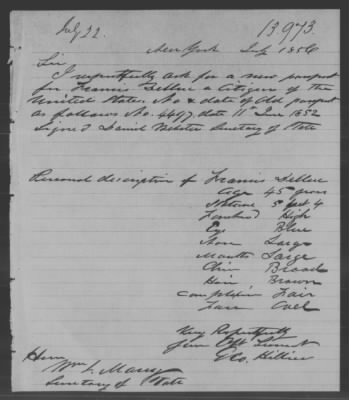 July 22. 13973.
New York July 1856
Sir
I respectfully ask for a new passport
for Francis a Citizen of the
United States. No & date of Old passport
as follows No. 4497, date 11th June 1852
Signed Daniel Webster Secretary of State
Personal description of Francis
Age 45 years
Stature 5 feet 4
Forehead High
Eyes Blue
Nose Large
Mouth Large
Chin Broad
Hair Brown
Complexion Fair
Face Oval
Very Respectfully
Your Obt Servant
Geo. Hillier
Hon
Wm L. Marcy
Secretary of State